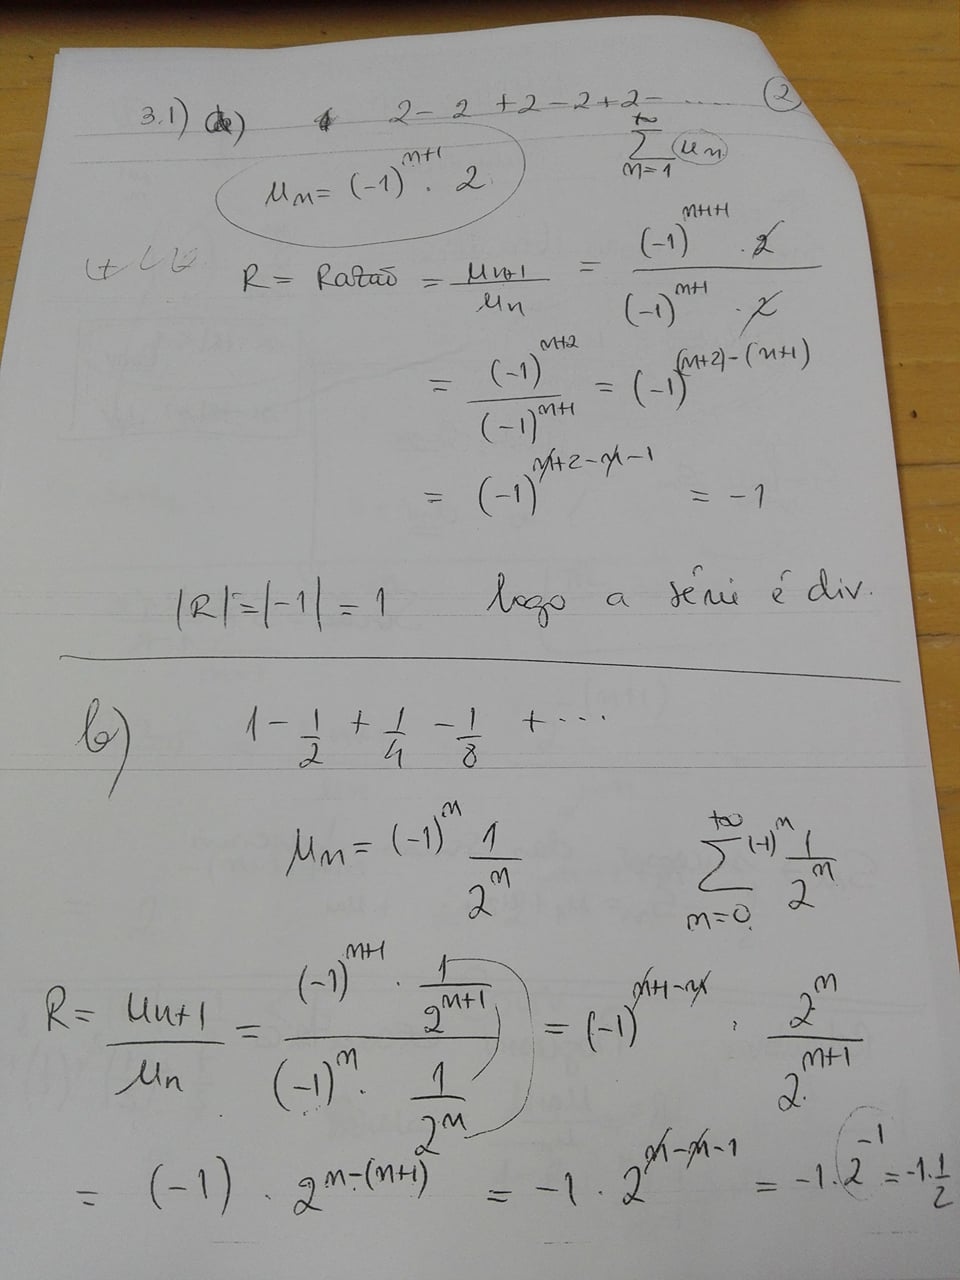 3.1) a) 2 - 2 + 2 - 2 + 2 - ..... 2
u_n = (-1)^{n+1} . 2 \sum_{n=1}^{+∞} u_n
R = Razão = \frac{u_{n+1}}{u_n} = \frac{(-1)^{n+1+1} . 2}{(-1)^{n+1} . 2}
= \frac{(-1)^{n+2}}{(-1)^{n+1}} = (-1)^{(n+2)-(n+1)}
= (-1)^{n+2-n-1} = -1
|R| = |-1| = 1 logo a série é div.
b) 1 - \frac{1}{2} + \frac{1}{4} - \frac{1}{8} + ...
u_n = (-1)^n \frac{1}{2^n} \sum_{n=0}^{+∞} (-1)^n \frac{1}{2^n}
R = \frac{u_{n+1}}{u_n} = \frac{(-1)^{n+1} . \frac{1}{2^{n+1}}}{(-1)^n . \frac{1}{2^n}} = (-1)^{n+1-n} . \frac{2^n}{2^{n+1}}
= (-1) . 2^{n-(n+1)} = -1 . 2^{n-n-1} = -1 . 2^{-1} = -1 . \frac{1}{2}